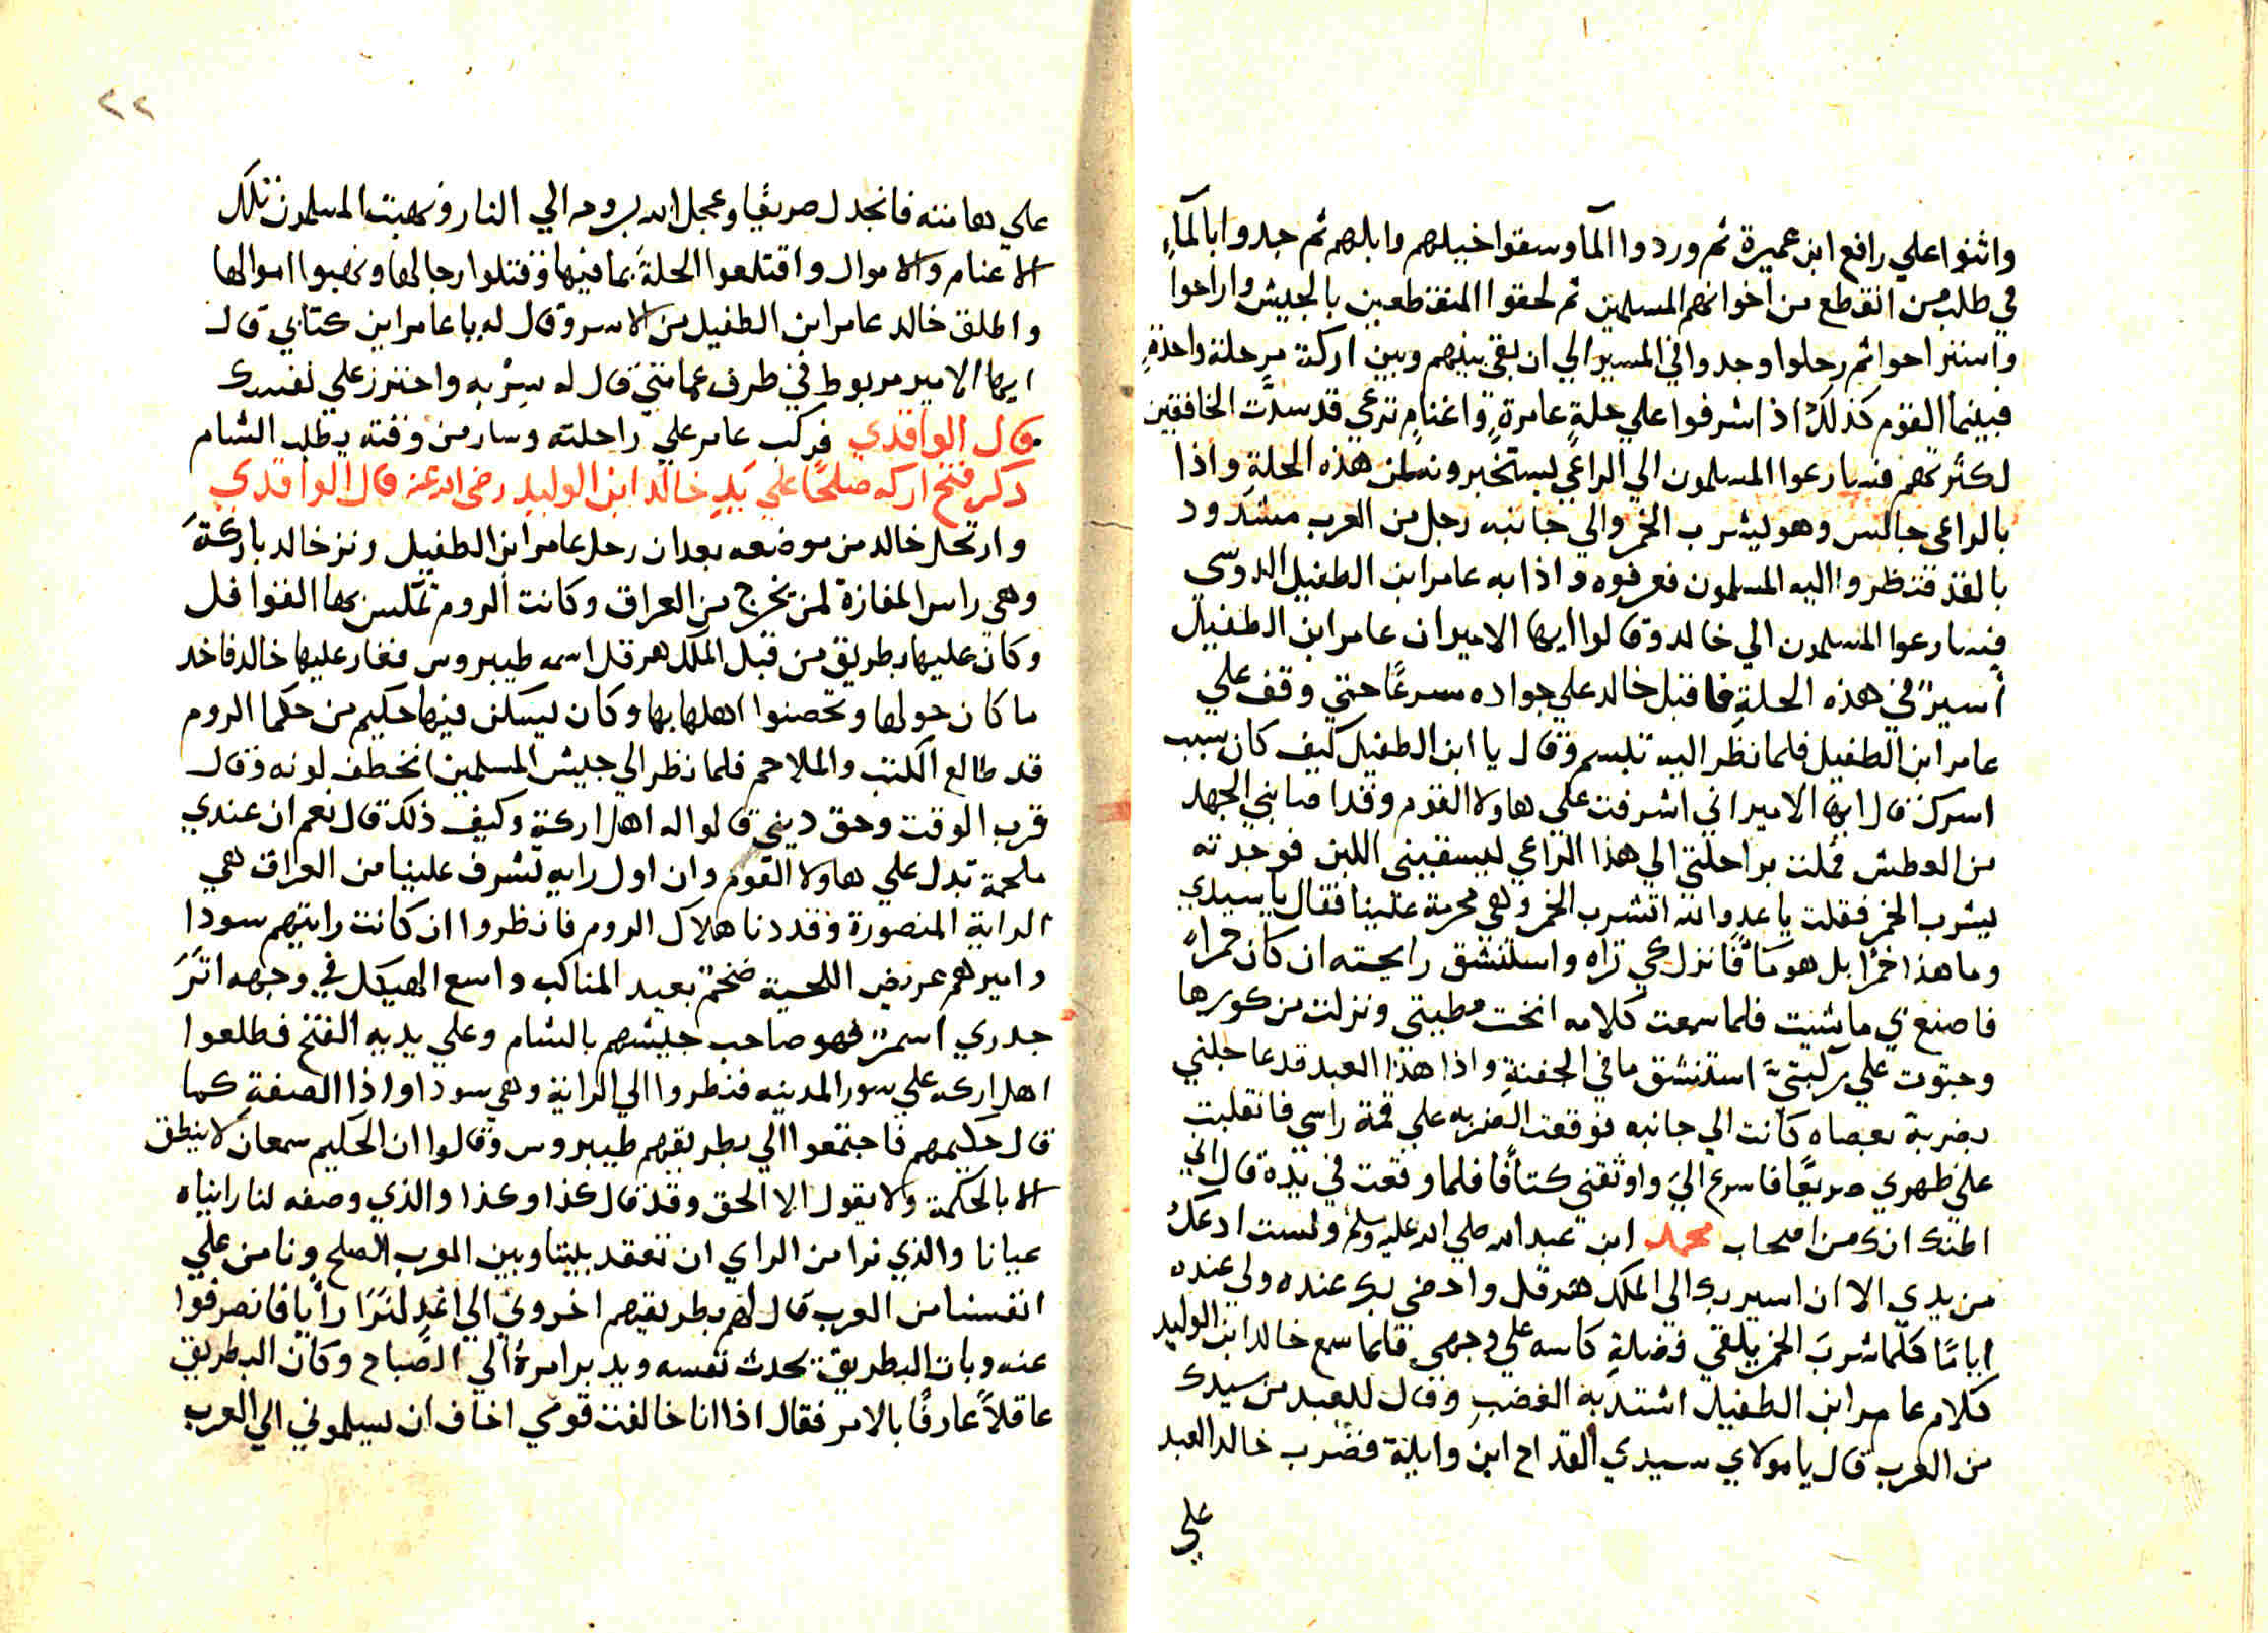 واثنوا علي رافع ابن عميرة ثم وردوا المآ وسقوا خيلهم وابلهم ثم جدوا بالمآء
في طلب من انقطع من اخوانهم المسلمين ثم لحقوا المنقطعين بالجيش واراحوا
واستراحوا ثم رحلوا وجدوا في المسير الي ان بقي بينهم وبين اركة مرحلة واحدة
فبينما القوم كذلك اذا اشرفوا علي حلةٍ عامرةٍ واغنامٍ ترعي قد سدّت الخافقين
لكثرتهم فسارعوا المسلمون الي الراعي ليستخبرونه لمن هذه الحلة واذا
بالراعي جالس وهو يشرب الخمر والي جانبه رجل من العرب مشدود
بالقد فنظروا اليه المسلمون فعرفوه واذا به عامر ابن الطفيل الدوسي
فسارعوا المسلمون الي خالد وقالوا ايها الامير ان عامر ابن الطفيل
أسيرٌ في هذه الحلةِ فاقبل خالد علي جواده مسرعًا حتي وقف علي
عامر ابن الطفيل فلما نظر اليه تبسم وقال يا ابن الطفيل كيف كان سبب
اسرك قال ايها الامير اني اشرفت علي هاولا القوم وقد اصابني الجهد
من العطش فملت براحلتي الي هذا الراعي ليسقيني اللبن فوجدته
يشرب الخمر فقلت يا عدو الله اتشرب الخمر وهي محرمة علينا فقال يا سيدي
وما هذا خمرًا بل هو مآءً فانزل كي تراه واستنشق رايحته ان كان خمراً
فاصنع بي ما شيت فلما سمعت كلامه انخت مطيتي ونزلت من كورها
وجثوت علي ركبتيَّ استنشق ما في الجفنةِ واذا هذا العبد قد عاجلني
بضربة بعصاه كانت الي جانبه فوقعت الضربه علي قمة راسي فانقلبت
علي ظهري صريعًا فاسرع اليَ واوثقني كتافًا فلما وقعت في يدة قال اني
اظنك انك من اصحاب محمد ابن عبد الله صلي الله عليه وسلم ولست ادعك
من يدي الا ان اسير بك الي الملك هرقل وادضي بك عنده ولي عنده
ايامًا كلّما شربَ الخمر يلقي فضلة كاسه علي وجهي فلما سمع خالد ابن الوليد
كلام عامر ابن الطفيل اشتد به الغضبِ وقال للعبد من سيدك
من العرب قال يا مولاي سيدي القداح ابن وايلة فضرب خالد العبد
علي
٢٢
علي هامته فانجدل صريعًا وعجل الله بروحه الي النار ونهبت المسلمون تلك
الاغنام والاموال واقتلعوا الحلةَ بما فيها وقتلوا رجالها ونهبوا اموالها
واطلق خالد عامر ابن الطفيل من الاسر وقال له يا عامر اين كتابي قال
ايها الامير مربوط في طرف عمامتي قال له سِرْ به واحترز علي نفسك
قال الواقدي فركب عامر علي راحلته وسار من وقته يطلب الشام
ذكر فتح اركه صلحًا علي يَدِ خالد ابن الوليد رضي الله عنه قال الواقدي
وارتحل خالد من موضعه بعد ان رحل عامر ابن الطفيل ونزر خالد باركةَ
وهي راس المفازة لمن يخرج من العراق وكانت الروم تمّلس بها القوافل
وكان عليها بطريق من قبل الملك هرقل اسمه طيبروس فغار عليها خالد فاخد
ما كان حولها وتحصنوا اهلها بها وكان يسكن فيها حكيم من حكما الروم
قد طالع الكتب والملاحم فلما نظر الي جيش المسلمين انخطف لونه وقال
قرب الوقت وحق ديني قالوا له اهل اركة وكيف ذلك قال نعم ان عندي
ملحمة تدل علي هاولا القوم وان اول رايه تشرف علينا من العراق هي
الراية المنصورة وقد دنا هلاك الروم فانظروا ان كانت رايتهم سودا
واميرهم عريض اللحية ضخم بعيد المناكب واسع الهيكل في وجهه اثَرَ
جدري اسمرٌ فهو صاحب جيشهم بالشام وعلي يديه الفتح فطلعوا
اهل اركه علي سور المدينه فنظروا الي الراية وهي سودا واذا الصفة كما
قال حكيمهم فاجتمعوا الي بطريقهم طيبروس وقالوا ان الحكيم سمعان لا ينطق
الا بالحكمة ولا يقول الا الحق وقد قال كذا وكذا والذي وصفه لنا رايناه
عيانا والذي نرا من الراي ان نعقد بيننا وبين العرب الصلح ونامن علي
انفسنا من العرب قال لهم بطريقهم اخروني الي اغدٍ لنَرَا راْيا فانصرفوا
عنه وبات البطريق يحدث نفسه ويدبر امرهُ الي الصباح وكان البطريق
عاقلاً عارفًا بالامر فقال اذا انا خالفت قومي اخاف ان يسلموني الي العرب